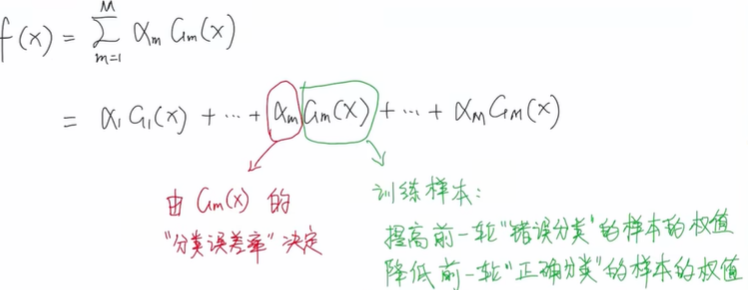 f(x) = \sum_{m=1}^{M} α_m G_m(x)
= α_1 G_1(x) + ⋯ + α_m G_m(x) + ⋯ + α_M G_M(x)
由 G_m(x) 的
"分类误差率" 决定
训练样本:
提高前一轮"错误分类"的样本的权值
降低前一轮"正确分类"的样本的权值